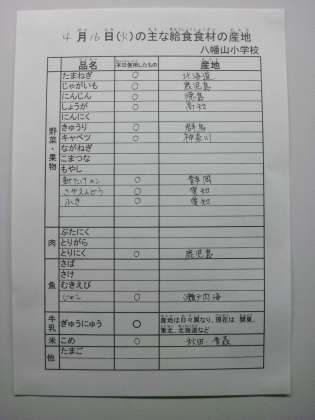 4月16日(火)の主な給食食材の産地
八幡山小学校
品名 本日使用したもの 産地
野菜・果物
たまねぎ ○ 北海道
じゃがいも ○ 鹿児島
にんじん ○ 徳島
しょうが ○ 高知
にんにく
きゅうり ○ 群馬
キャベツ ○ 神奈川
ながねぎ
こまつな
もやし
新たけのこ ○ 静岡
さやえんどう ○ 愛知
ふき ○ 愛知
肉
ぶたにく
とりがら
とりにく ○ 鹿児島
魚
さば
さけ
むきえび
○ 瀬戸内海
牛乳 ぎゅうにゅう ○ 産地は日々異なり、現在は、関東、
東北、北海道など
米 こめ ○ 秋田・青森
他 たまご